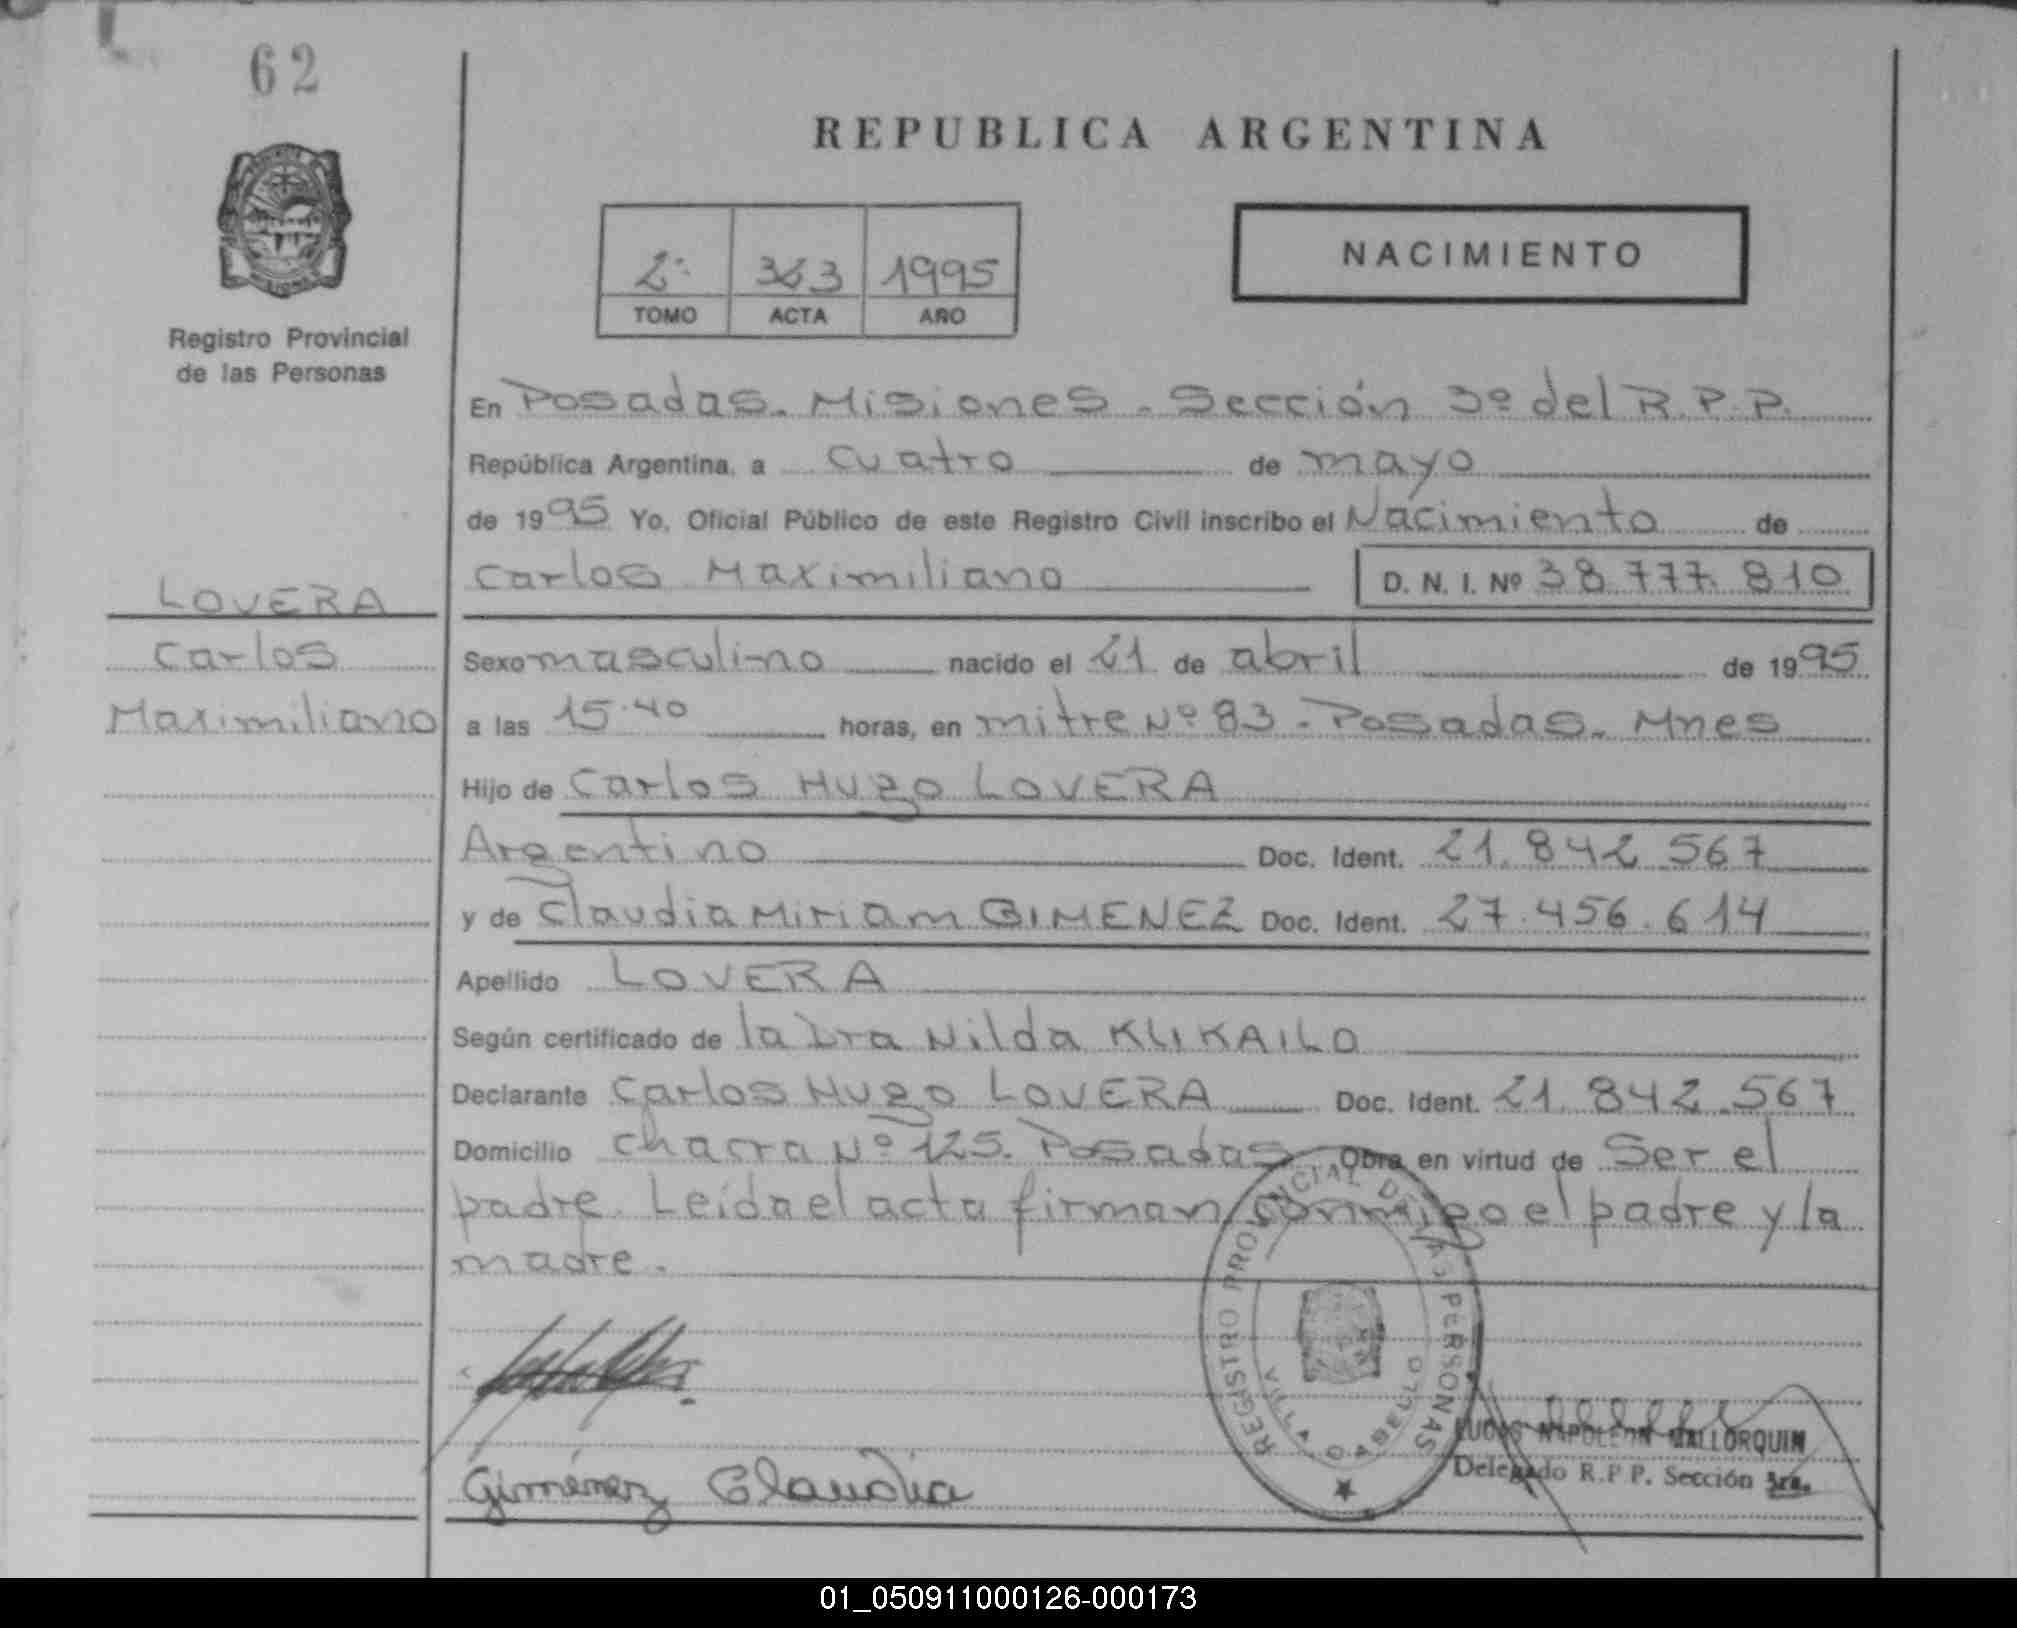 62
REPUBLICA ARGENTINA
2º 323 1995
TOMO ACTA AÑO
NACIMIENTO
Registro Provincial
de las Personas
En Posadas. Misiones. Sección 3º del R.P.P.
República Argentina, a cuatro de mayo
de 1995 Yo, Oficial Público de este Registro Civil inscribo el Nacimiento de
Carlos Maximiliano D. N. I. Nº 38.777.810
LOVERA
Carlos
Maximiliano
Sexo masculino nacido el 21 de abril de 1995
a las 15.40 horas, en mitre Nº 83 - Posadas. Mnes
Hijo de Carlos Hugo LOVERA
Argentino Doc. Ident. 21.842.567
y de Claudia Miriam GIMENEZ Doc. Ident. 27.456.614
Apellido LOVERA
Según certificado de la Dra Nilda KLIKAILO
Declarante Carlos Hugo LOVERA Doc. Ident. 21.842.567
Domicilio chacra Nº 125. Posadas Obra en virtud de Ser el
padre. Leída el acta firman conmigo el padre y la
madre.
REGISTRO PROVINCIAL DE LAS PERSONAS
VILLA CABELLO
LUCAS NAPOLEON MALLORQUIN
Delegado R.P P. Sección 3ra.
Giménez Claudia
01_050911000126-000173